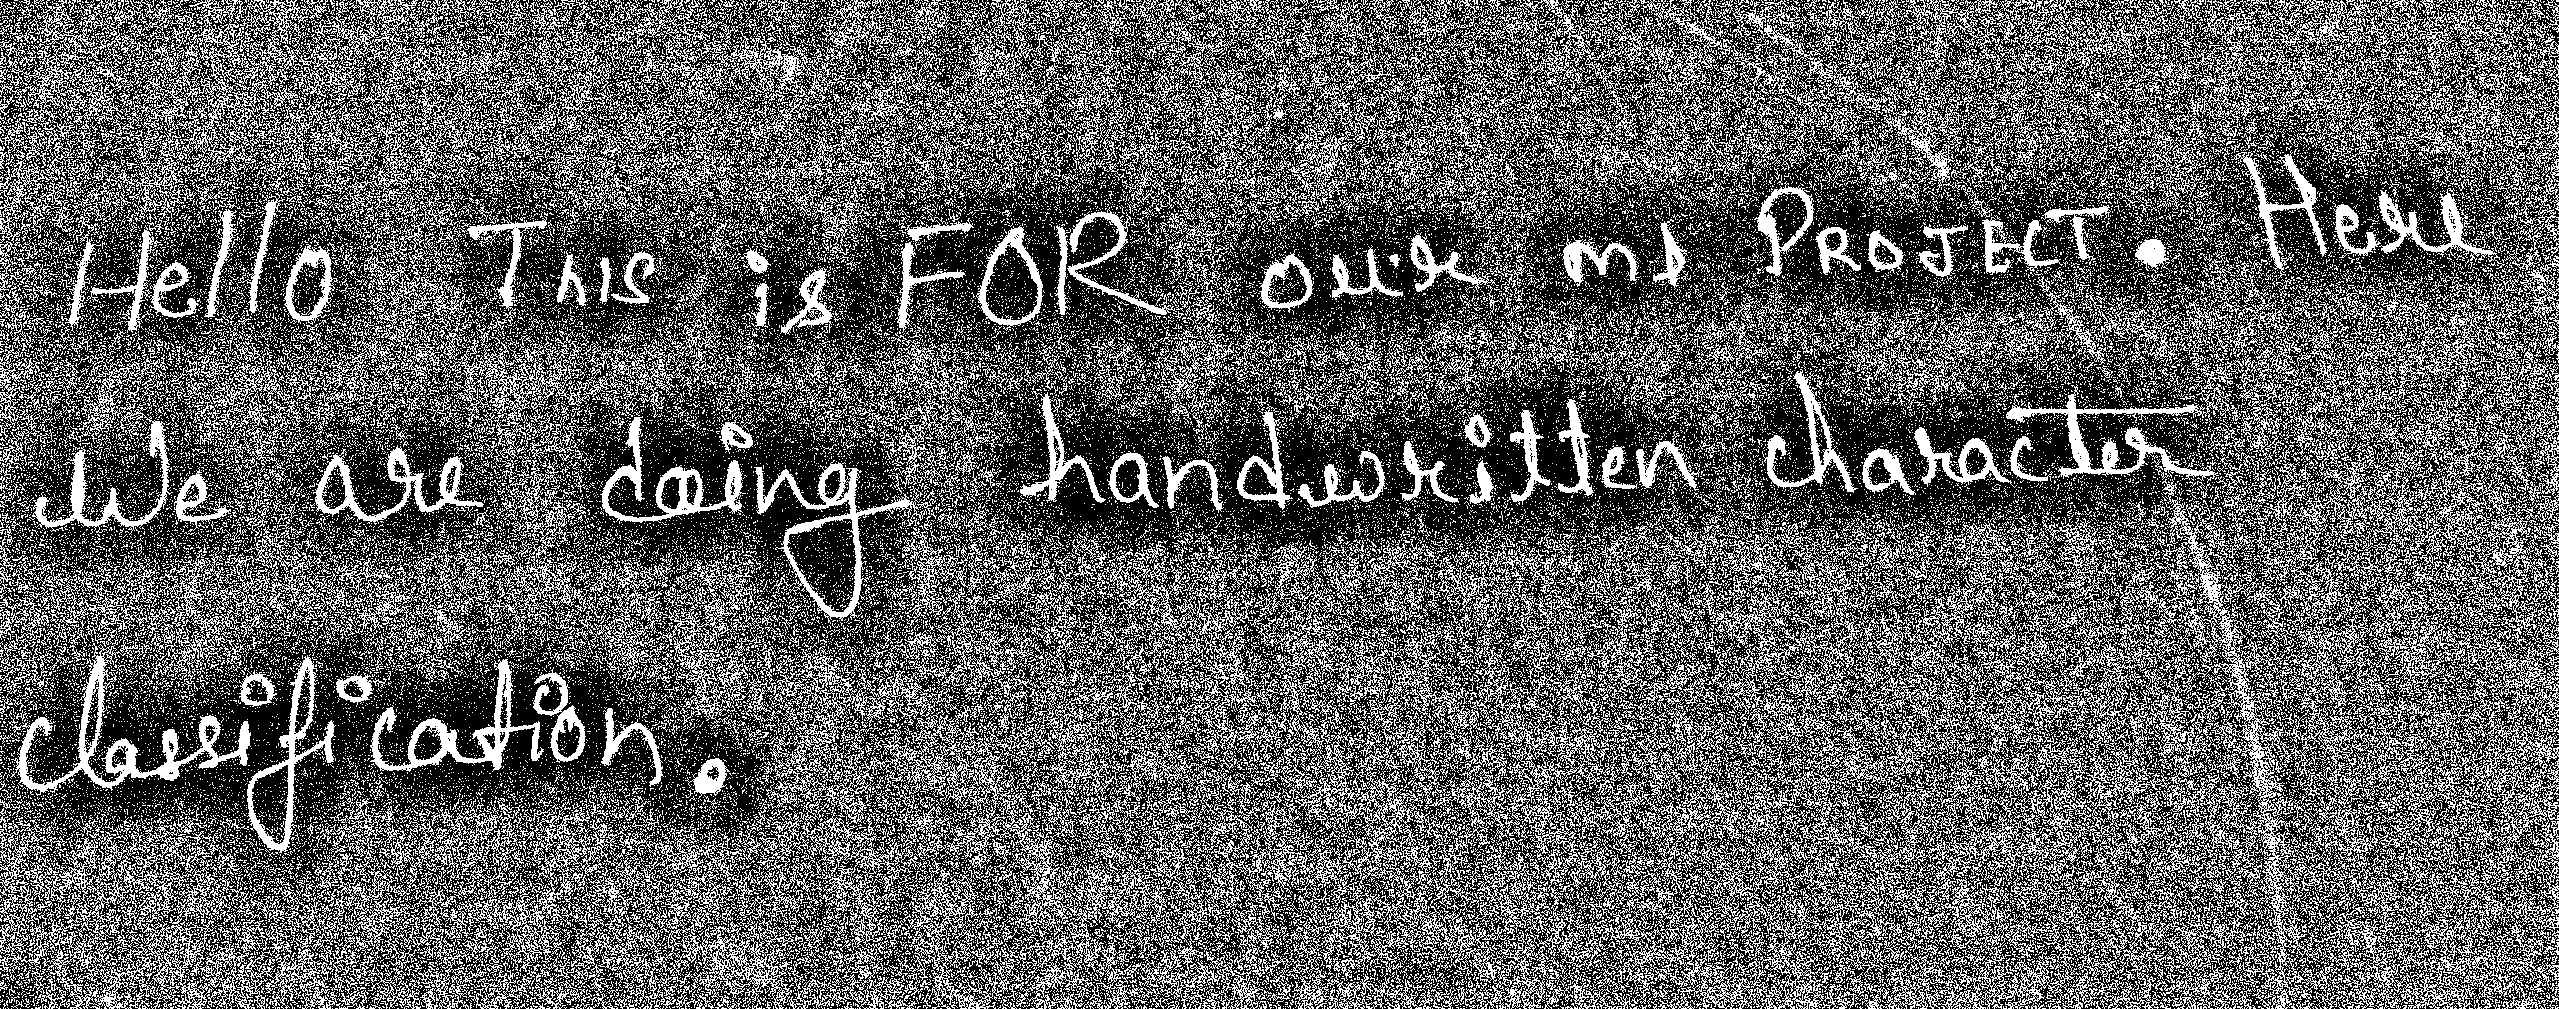 Hello This is FOR our ms PROJECT. Here
We are doing handwritten character
classification.